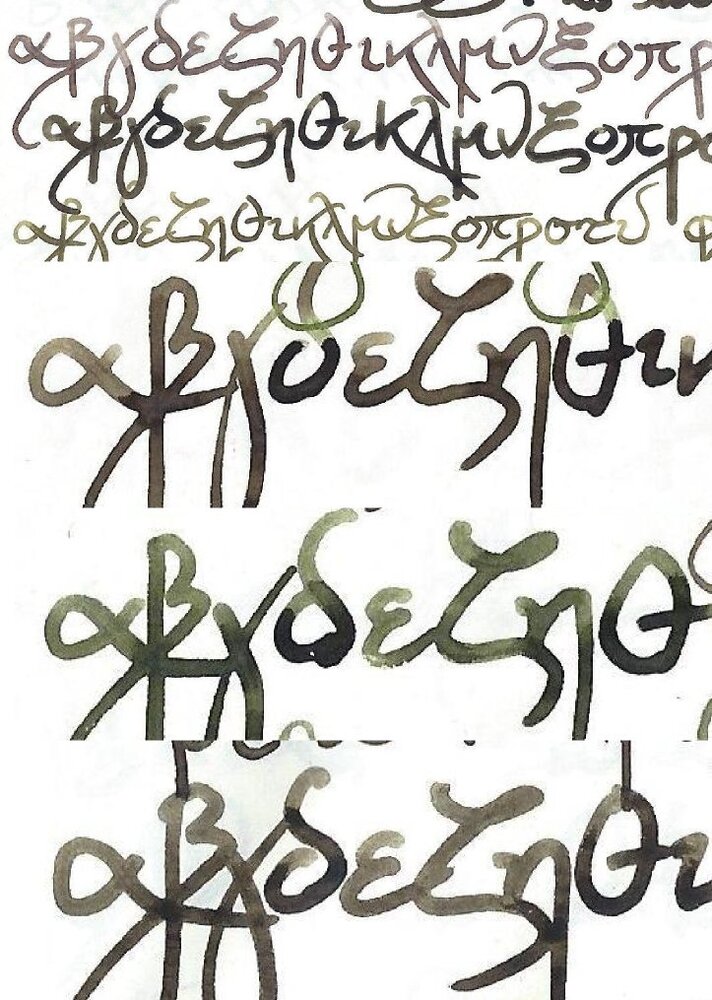 αβγδεζηθικλμνξοπρ
αβγδεζηθικλμνξοπρο
αβγδεζηθικλμνξοπροτυ φ
αβγδεζηθικ
αβγδεζηθ
αβγδεζηθι